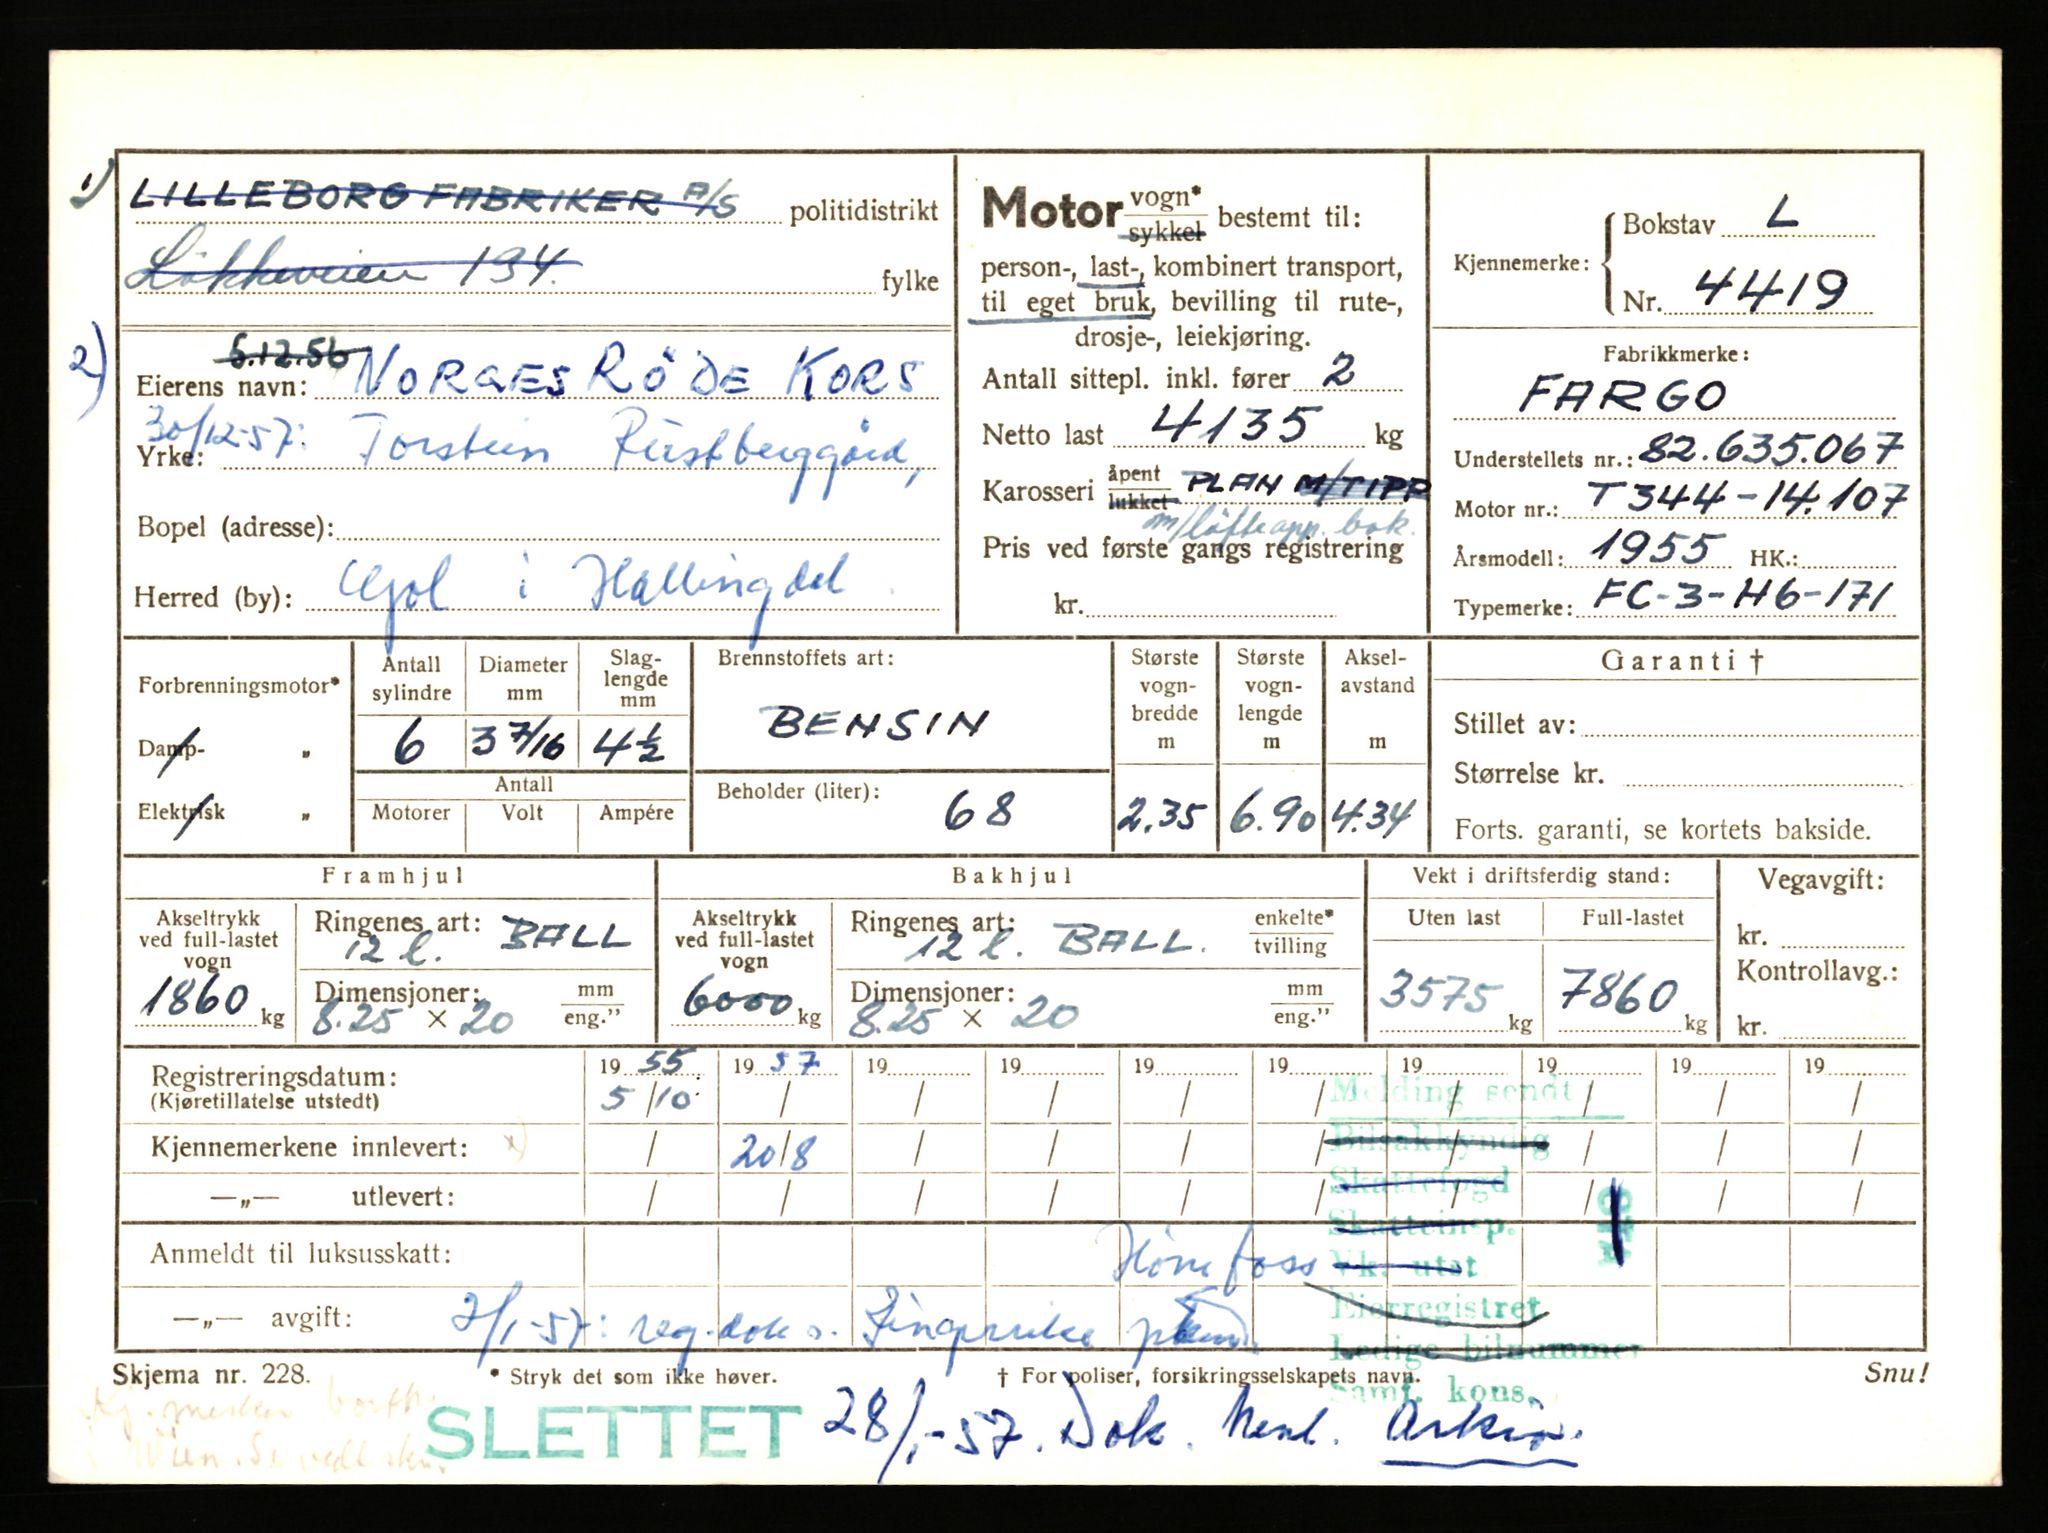 1) LILLEBORG FABRIKER A/S politidistrikt
Løkkeveien 134. fylke
2) 5.12.56
Eierens navn: NORGES RÖDE KORS
30/12-57: Torstein Rustberggård,
Yrke:
Bopel (adresse):
Herred (by): Gol i Hallingdal
Motor vogn* sykkel bestemt til:
person-, last-, kombinert transport,
til eget bruk, bevilling til rute-,
drosje-, leiekjøring.
Antall sittepl. inkl. fører 2
Netto last 4135 kg
Karosseri åpent lukket PLAN M/TIPP
m/løfteapp. bak.
Pris ved første gangs registrering
kr.
Kjennemerke: Bokstav L
Nr. 4419
Fabrikkmerke:
FARGO
Understellets nr.: 82.635.067
Motor nr.: T344-14.107
Årsmodell: 1955 HK.:
Typemerke: FC-3-H6-171
Forbrenningsmotor*
Damp- „
Elektrisk „
Antall sylindre
Diameter mm
Slag-lengde mm
6 3 7/16 4 1/2
Antall
Motorer Volt Ampére
Brennstoffets art:
BENSIN
Beholder (liter): 68
Største vogn-bredde m
2.35
Største vogn-lengde m
6.90
Aksel-avstand m
4.34
Garanti †
Stillet av:
Størrelse kr.
Forts. garanti, se kortets bakside.
Framhjul
Akseltrykk ved full-lastet vogn
1860 kg
Ringenes art: 12 l. BALL
Dimensjoner: mm eng."
8.25 x 20
Bakhjul
Akseltrykk ved full-lastet vogn
6000 kg
Ringenes art: 12 l. BALL. enkelte* tvilling
Dimensjoner: mm eng."
8.25 x 20
Vekt i driftsferdig stand:
Uten last Full-lastet
3575 kg 7860 kg
Vegavgift:
kr.
Kontrollavg.:
kr.
Registreringsdatum: 19 55 19 57 19 19 19 19 19 19 19 19
(Kjøretillatelse utstedt) 5/10 / / / / / / / / /
Kjennemerkene innlevert: x) / 20/8 / / / / / / / /
—„— utlevert: / / / / / / / / / /
Anmeldt til luksusskatt:
—„— avgift:
Hønefoss
2/1-57: reg.dok s.
Melding sendt:
Bilsakkyndig
Skattefogd
Skatteinsp.
Vk. utst
Eierregistret
Ledige bilnummer
Samf. kons.
Skjema nr. 228.
* Stryk det som ikke høver.
† For poliser, forsikringsselskapets navn.
Snu!
SLETTET
28/1-57. Dok. Arkiv.